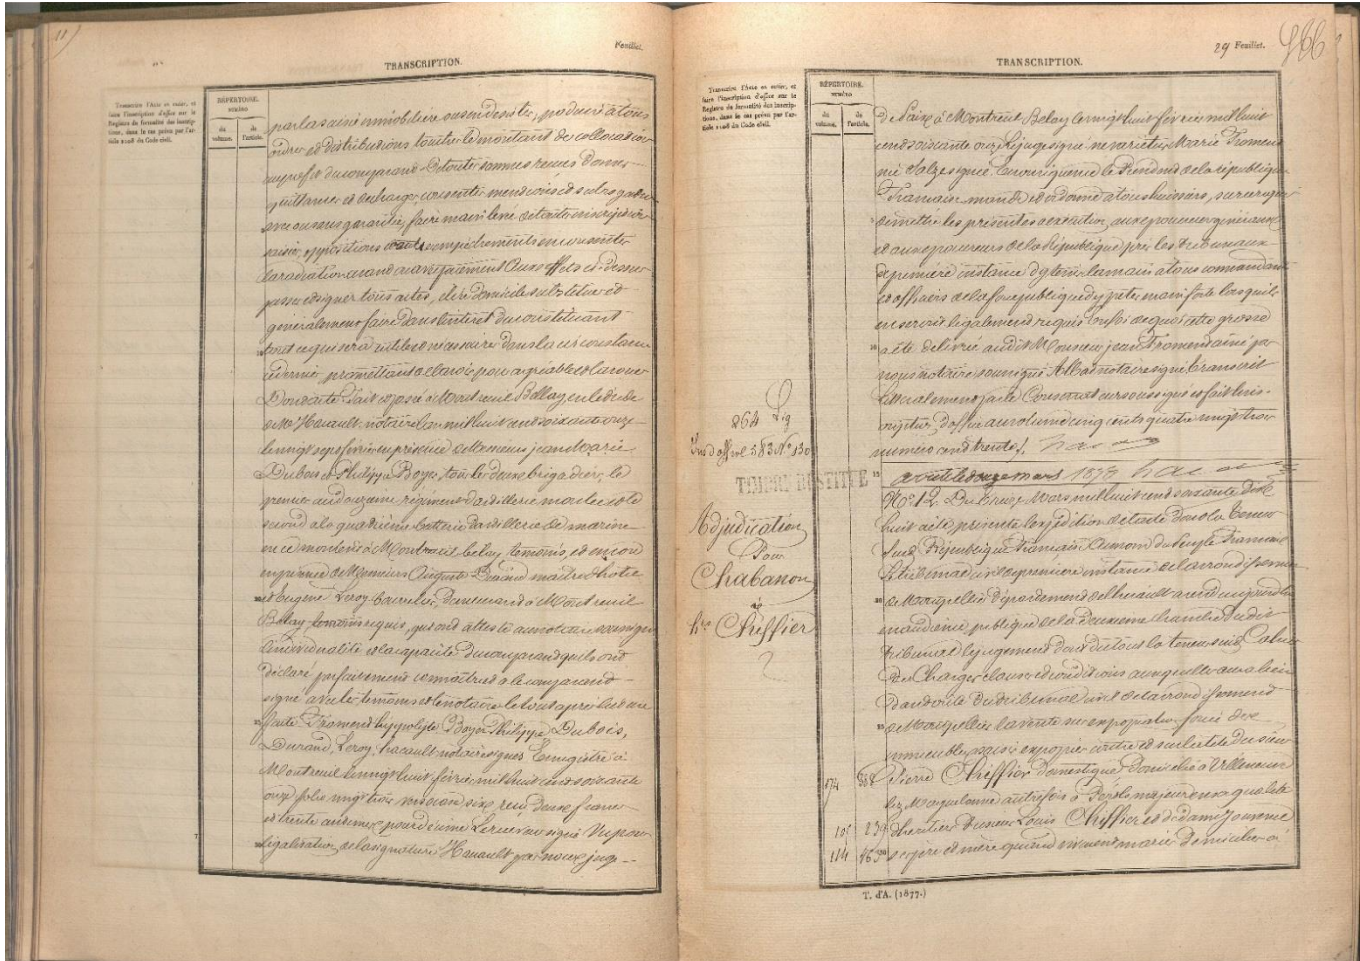 11
Feuillet.
TRANSCRIPTION.
Transcrire l'Acte en entier, et
faire l'inscription d'office sur le
Registre de formalité des inscrip-
tions, dans le cas prévu par l'ar-
ticle 2108 du Code civil.
RÉPERTOIRE.
numéro
du volume.
de l'article.
par la saisie immobilière ou produire à tous
ordres et distributions toucher le montant de collocation
au profit du comparant De toutes sommes reçues donner
quittances et décharges, consentir mentions et subrogations
avec ou sans garantie, faire main levée de toutes inscriptions
saisies, oppositions et autres empêchements en consentir
la radiation avant ou après paiement Aux effets ci-dessus
passer et signer tous actes, élire domicile substituer et
généralement faire dans l'intérêt du constituant
tout ce qui sera utile et nécessaire dans la circonstance
ce dernier promettant de l'avoir pour agréable et l'avouer
Dont acte Fait et passé à Montreuil Bellay en l'étude
de Me Hacault, notaire L'an mil huit cent soixante onze
le vingt sept février en présence de Messieurs Jean Marie
Dubois et Philippe Boyer tous les deux brigadiers, le
premier au douzième régiment d'artillerie montée et le
second à la quatrième batterie d'artillerie de marine
en ce moment à Montreuil bellay témoins, et encore
en présence de Messieurs Auguste Durand maître d'hôtel
et Eugène Leroy bourrelier, demeurant à Montreuil
Bellay témoins requis, qui ont attesté au notaire soussigné
l'individualité et la capacité du comparant qu'ils ont
déclaré parfaitement connaître et le comparant
signé avec les témoins et le notaire le tout après lecture
faite Froment hyppolyte Boyer Philippe Dubois,
Durand, Leroy, hacault notaire signés Enregistré à
Montreuil le vingt huit février mil huit cent soixante
onze folio vingt trois verso case six reçu deux francs
et trente centimes pour décime Leroux signé Vu pour
légalisation de la signature Hacault par nous juge
29 Feuillet.
466
TRANSCRIPTION.
Transcrire l'Acte en entier, et
faire l'inscription d'office sur le
Registre de formalité des inscrip-
tions, dans le cas prévu par l'ar-
ticle 2108 du Code civil.
RÉPERTOIRE.
numéro
du volume.
de l'article.
de Paix à Montreuil Bellay le vingt huit février mil huit
cent soixante onze Le juge signé ne varietur Marie Froment
née Salze signée En conséquence le Président de la république
Française mande et ordonne à tous huissiers, sur ce requis
de mettre les présentes à exécution, aux procureurs généraux
et aux procureurs de la République près les tribunaux
de première instance d'y tenir la main à tous commandants
et officiers de la force publique d'y prêter main forte lorsqu'ils
en seront légalement requis En foi de quoi cette grosse
a été délivrée audit Monsieur jean Froment ainé par
nous notaire soussigné Albad notaire signé transcrit
littéralement par le Conservateur soussigné et fait l'ins-
cription d'office au volume cinq cents quatre vingt trois
numéro cent trente.
264 Lig
Ins d'off vol 583 No 130
TIMBRE RESTITUÉ
arrêté le douze mars 1878
No 12. Du treize Mars mil huit cent soixante dix
huit a été présentée l'expédition de l'acte dont la teneur
suit République Française Au nom du Peuple Français
Le tribunal civil de première instance de l'arrondissement
de Montpellier département de l'hérault a rendu aujourd'hui
en audience publique de la deuxième chambre dudit
tribunal le jugement dont du tout la teneur suit Cahier
des Charges clauses et conditions auxquelles aura lieu
devant le tribunal civil de l'arrondissement
de Montpellier la vente sur expropriation forcée des
immeubles saisis à exproprier contre et sur la tête du sieur
Pierre Cheffier domestique domicilié à Villeneuve
lez Maguelonne autrefois à Pérols majeur en sa qualité
d'héritier du sieur Louis Cheffier et de dame Jeanne
ses père et mère quand vivaient mariés domiciliés à
Adjudication
Pour
Chabanon
Cheffier
T. d'A. (1877.)